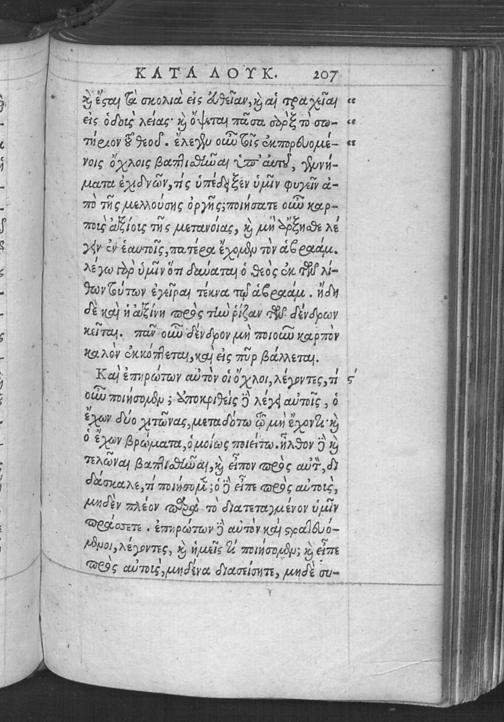 ΚΑΤΑ ΛΟΥΚ. 207
καὶ ἔσται τὰ σκολιὰ εἰς εὐθεῖαν, καὶ αἱ τραχεῖαι "
εἰς ὁδοὺς λείας· καὶ ὄψεται πᾶσα σὰρξ τὸ σω- "
τήριον τοῦ θεοῦ. ἔλεγεν οὖν τοῖς ἐκπορευομέ- "
νοις ὄχλοις βαπτισθῆναι ὑπ' αὐτοῦ, γεννή-
ματα ἐχιδνῶν, τίς ὑπέδειξεν ὑμῖν φυγεῖν ἀ-
πὸ τῆς μελλούσης ὀργῆς; ποιήσατε οὖν καρ-
ποὺς ἀξίους τῆς μετανοίας, καὶ μὴ ἄρξησθε λέ
γειν ἐν ἑαυτοῖς, πατέρα ἔχομεν τὸν ἀβραάμ.
λέγω γὰρ ὑμῖν ὅτι δύναται ὁ θεὸς ἐκ τῶν λί-
θων τούτων ἐγεῖραι τέκνα τῷ ἀβραάμ. ἤδη
δὲ καὶ ἡ ἀξίνη πρὸς τὴν ῥίζαν τῶν δένδρων
κεῖται. πᾶν οὖν δένδρον μὴ ποιοῦν καρπὸν
καλὸν ἐκκόπτεται, καὶ εἰς πῦρ βάλλεται.
Καὶ ἐπηρώτων αὐτὸν οἱ ὄχλοι, λέγοντες, τί
οὖν ποιήσομεν; ἀποκριθεὶς δὲ λέγει αὐτοῖς, ὁ
ἔχων δύο χιτῶνας, μεταδότω τῷ μὴ ἔχοντι· καὶ
ὁ ἔχων βρώματα, ὁμοίως ποιείτω. ἦλθον δὲ καὶ
τελῶναι βαπτισθῆναι, καὶ εἶπον πρὸς αὐτὸν, δι
δάσκαλε, τί ποιήσομεν; ὁ δὲ εἶπε πρὸς αὐτοὺς,
μηδὲν πλέον παρὰ τὸ διατεταγμένον ὑμῖν
πράσσετε. ἐπηρώτων δὲ αὐτὸν καὶ στρατευό-
μενοι, λέγοντες, καὶ ἡμεῖς τί ποιήσομεν; καὶ εἶπε
πρὸς αὐτοὺς, μηδένα διασείσητε, μηδὲ συ-